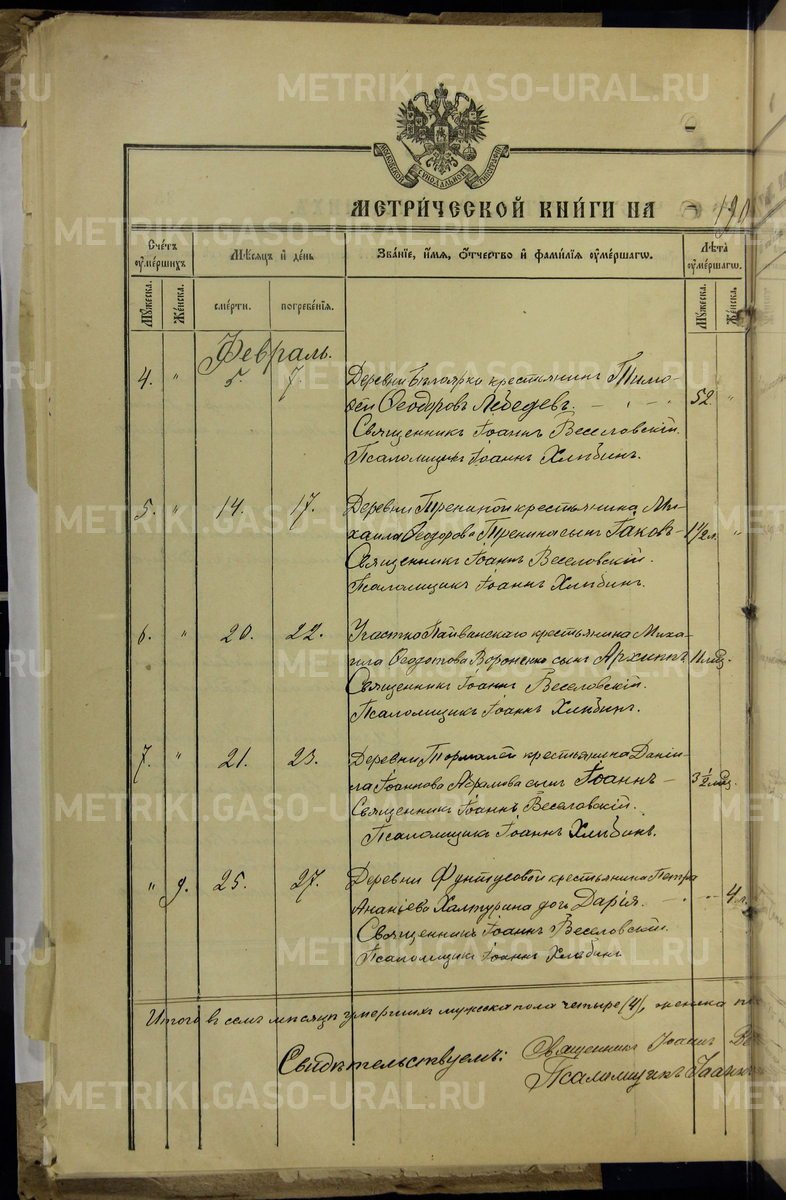 METRIKI.GASO-URAL.RU
МОСКОВСКОЙ СѴНОДАЛЬНОЙ ТИПОГРАФІИ
МЕТРИ́ЧЕСКОЙ КНИ́ГИ НА 190
Сче́тъ ᲂу҆ме́ршихъ
Мѣ́сяцъ и҆ де́нь
Зва́нїе, и҆́мѧ, ѻ҆́тчество и҆ фами́лїѧ ᲂу҆ме́ршагѡ.
Лѣ́та ᲂу҆ме́ршагѡ.
Мꙋ́жеска.
Же́нска.
сме́рти.
погребе́нїѧ.
Мꙋ́жеска.
Же́нска.
Февраль.
4. " 5. 7. Деревни Бѣлоярки крестьянинъ Тимо-
фей Ѳеодоровъ Лебедевъ. 52. "
Священникъ Іоаннъ Веселовскій.
Псаломщикъ Іоаннъ Хлѣбинъ.
5. " 14. 17. Деревни Трениной крестьянина Ми-
хаила Ѳеодорова Тренина сынъ Іаковъ 1 1/2 л. "
Священникъ Іоаннъ Веселовскій.
Псаломщикъ Іоаннъ Хлѣбинъ.
6. " 20. 22. Участка крестьянина Миха-
ила Ѳедотова Вороненко сынъ Архиппъ 11 мѣс.
Священникъ Іоаннъ Веселовскій.
Псаломщикъ Іоаннъ Хлѣбинъ.
7. " 21. 23. Деревни крестьянина Даніи-
ла Іоаннова Абрамова сынъ Іоаннъ 3 1/2 мѣс.
Священникъ Іоаннъ Веселовскій.
Псаломщикъ Іоаннъ Хлѣбинъ.
" 9. 25. 27. Деревни Фунтусовой крестьянина Петра
Ананіева Халтурина дочь Дарія. 4 л.
Священникъ Іоаннъ Веселовскій.
Псаломщикъ Іоаннъ Хлѣбинъ
Итого въ семъ мѣсяцѣ умершихъ мужеска пола четыре (4), женска
Свидѣтельствуемъ: Священникъ Іоаннъ
Псаломщикъ Іоаннъ